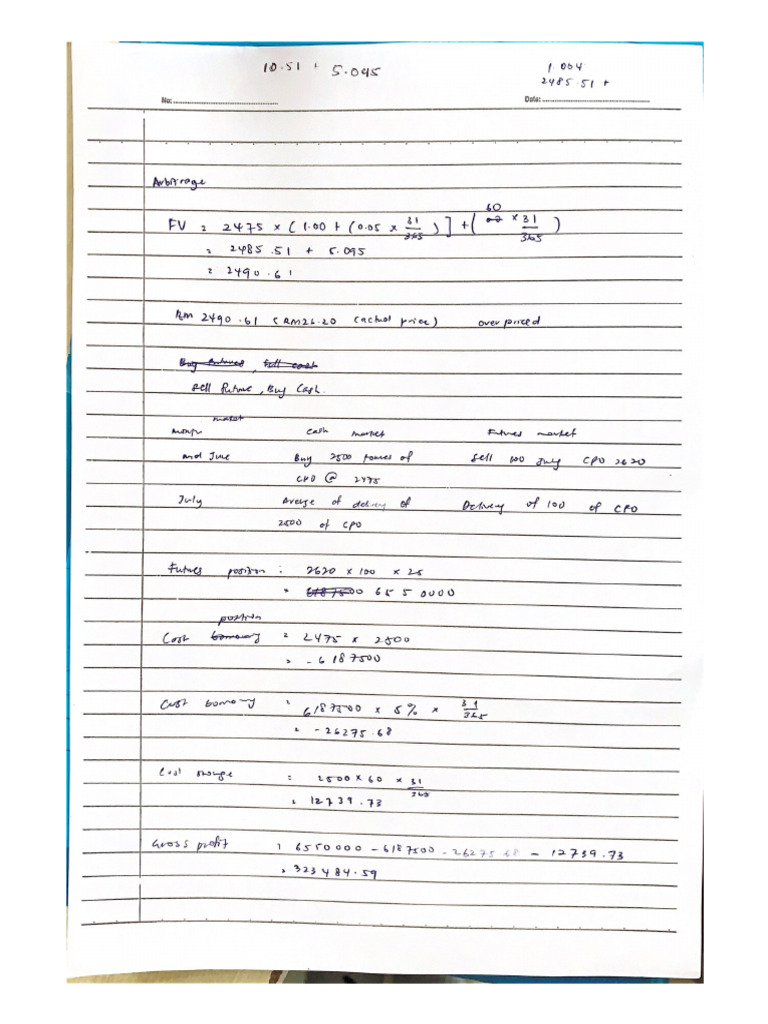 10.51 + 5.095
1.004
2485.51 +
No:
Date:
Arbitrage
FV = 2475 × ( 1.00 + (0.05 × 31/365 ) ] + ( 60 × 31/365 )
= 2485.51 + 5.095
= 2490.61
RM 2490.61 < RM26.20 (actual price) overpriced
Buy futures, sell cash
Sell future, Buy Cash.
market
month cash market Futures market
mid June Buy 2500 tonnes of Sell 100 July CPO 2620
CPO @ 2475
July of delivery of Delivery of 100 of CPO
2500 of CPO
Futures position : 2620 × 100 × 25
= 6187500 6550000
position
Cost borrowing = 2475 × 2500
= -6187500
Cost borrowing = 6187500 × 5% × 31/365
= -26275.68
Cost storage = 2500 × 60 × 31/365
= 12739.73
Gross profit = 6550000 - 6187500 - 26275.68 - 12739.73
= 323484.59